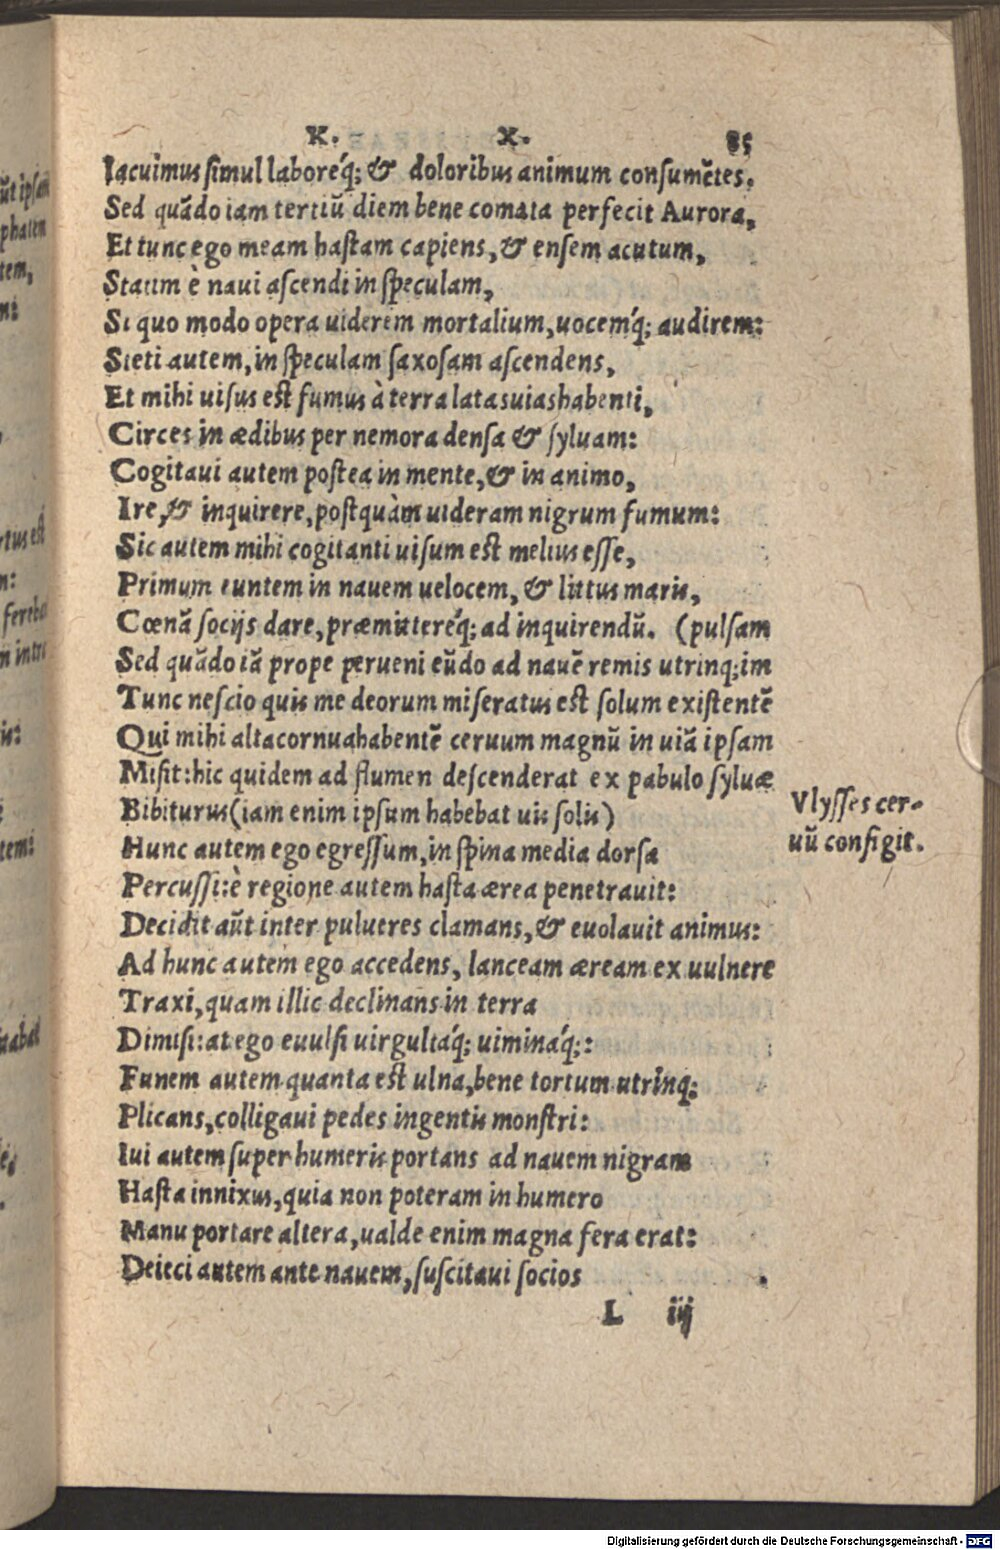 K. X. 85
Iacuimus simul laboreq́; & doloribus animum consumẽtes.
Sed quãdo iam tertiũ diem bene comata perfecit Aurora,
Et tunc ego meam hastam capiens, & ensem acutum,
Statim è naui ascendi in speculam,
Si quo modo opera uiderem mortalium, uocemq́; audirem:
Steti autem, in speculam saxosam ascendens,
Et mihi uisus est fumus à terra latas uias habenti,
Circes in ædibus per nemora densa & syluam:
Cogitaui autem postea in mente, & in animo,
Ire, & inquirere, postquàm uideram nigrum fumum:
Sic autem mihi cogitanti uisum est melius esse,
Primum euntem in nauem uelocem, & littus maris,
Cœnã socijs dare, præmittereq́; ad inquirendũ. (pulsam
Sed quãdo iã prope perueni eũdo ad nauẽ remis utrinq; im
Tunc nescio quis me deorum miseratus est solum existentẽ
Qui mihi alta cornua habentẽ ceruum magnũ in uiã ipsam
Misit: hic quidem ad flumen descenderat ex pabulo syluæ
Bibiturus (iam enim ipsum habebat uis solis)
Hunc autem ego egressum, in spina media dorsa
Percussi: è regione autem hasta ærea penetrauit:
Decidit aũt inter pulueres clamans, & euolauit animus:
Ad hunc autem ego accedens, lanceam æream ex uulnere
Traxi, quam illic declinans in terra
Dimisi: at ego euulsi uirgultaq́; uiminaq́;:
Funem autem quanta est ulna, bene tortum utrinq;
Plicans, colligaui pedes ingentis monstri:
Iui autem super humeris portans ad nauem nigram
Hasta innixus, quia non poteram in humero
Manu portare altera, ualde enim magna fera erat:
Deieci autem ante nauem, suscitaui socios
L iij
Vlysses cer-
uũ configit.
ũt ipsam
phaten
tem,
n:
rtus est
n:
ferebat
n intro
is:
tem:
Digitalisierung gefördert durch die Deutsche Forschungsgemeinschaft - DFG